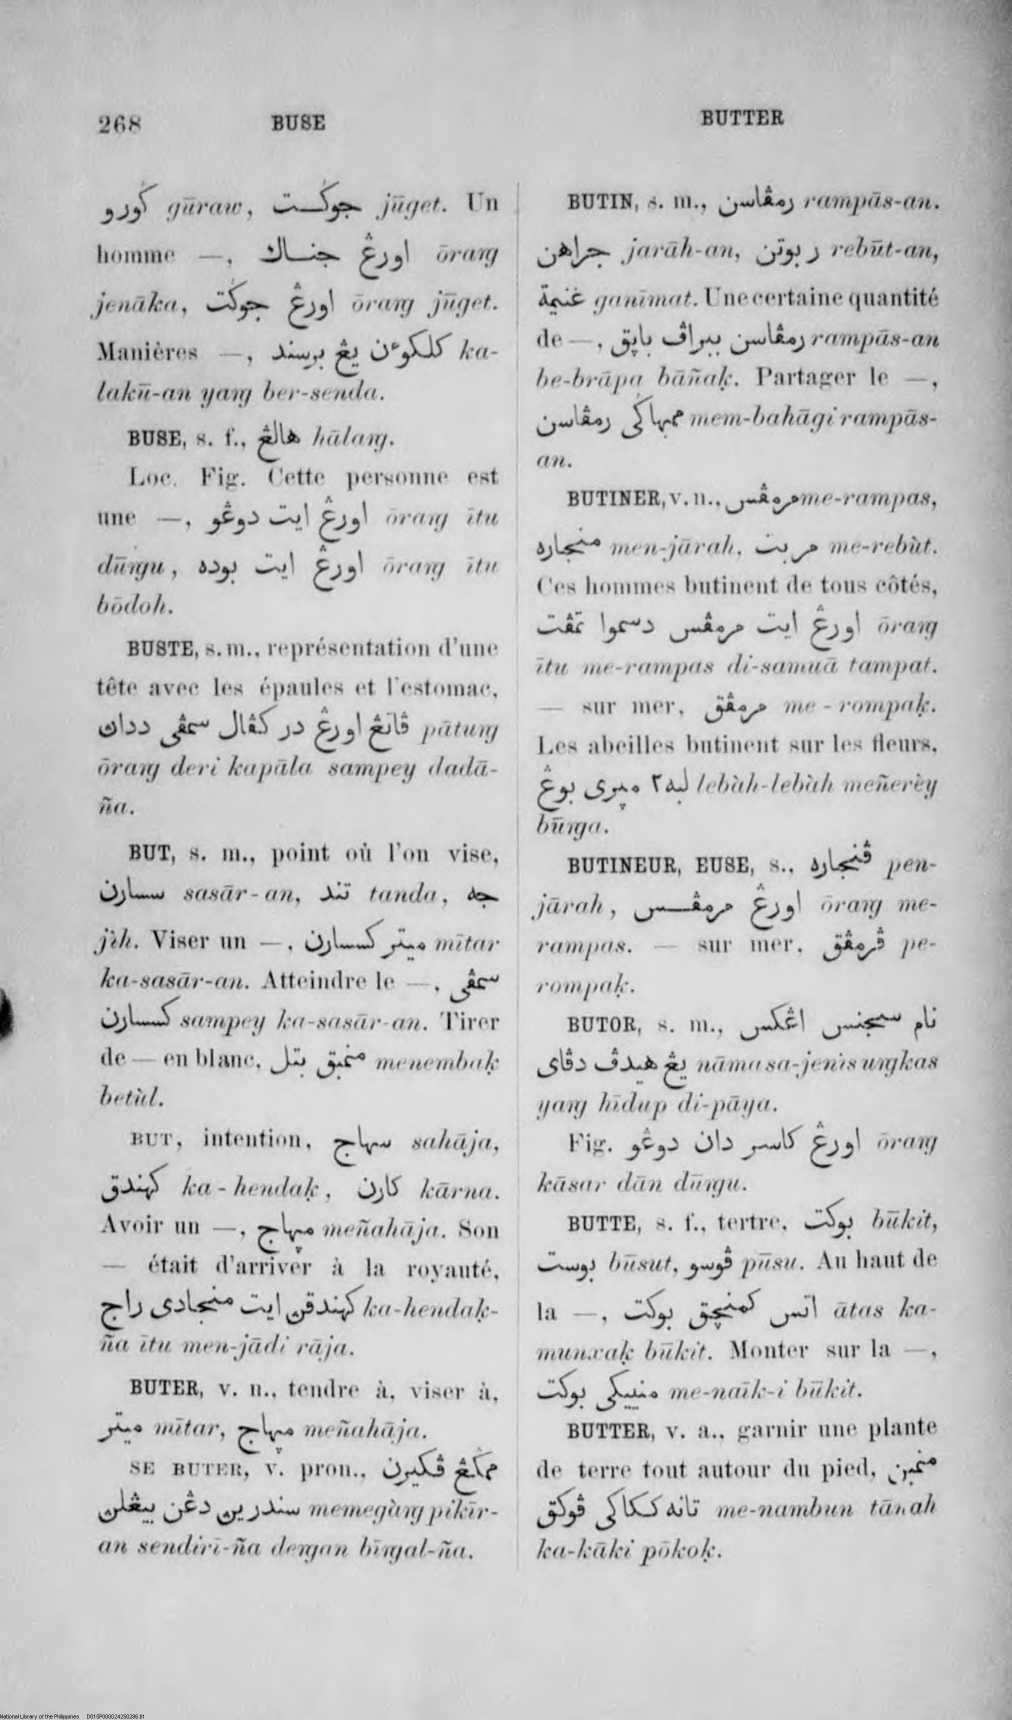 268 BUSE BUTTER
ݢورو gūraw, جوݢت jūget. Un
homme —, اورڠ جناک ōrang
jenāka, اورڠ جوݢت ōrang jūget.
Manières —, کلکوءن يڠ برسند ka-
lakū-an yang ber-senda.
BUSE, s. f., هالڠ hālang.
Loc. Fig. Cette personne est
une —, اورڠ ايت دوڠو ōrang ītu
dūngu, اورڠ ايت بوده ōrang ītu
bōdoh.
BUSTE, s. m., représentation d'une
tête avec les épaules et l'estomac,
ڤاتڠ اورڠ در کڤال سمڤی دداڽ pātung
ōrang deri kapāla sampey dadā-
ña.
BUT, s. m., point où l'on vise,
سسارن sasār-an, تند tanda, جه
jìh. Viser un —, ميتر کسسارن mītar
ka-sasār-an. Atteindre le —, سمڤی
کسسارن sampey ka-sasār-an. Tirer
de — en blanc, منمبق بتل menembaḳ
betùl.
BUT, intention, سهاج sahāja,
کهندق ka-hendaḳ, کارن kārna.
Avoir un —, مڽهاج meñahāja. Son
— était d'arriver à la royauté,
کهندقڽ ايت منجادی راج ka-hendaḳ-
ña ītu men-jādi rāja.
BUTER, v. n., tendre à, viser à,
ميتر mītar, مڽهاج meñahāja.
SE BUTER, v. pron., ممݢڠ ڤيکيرن
سنديريڽ دڠن بيڠلڽ memegàng pikīr-
an sendirī-ña dengan bīngal-ña.
BUTIN, s. m., رمڤاسن rampās-an.
جراهن jarāh-an, ربوتن rebūt-an,
غنيمة ganīmat. Une certaine quantité
de —, رمڤاسن ببراڤ باڽق rampās-an
be-brāpa bāñaḳ. Partager le —,
ممبهاݢی رمڤاسن mem-bahāgi rampās-
an.
BUTINER, v. n., مرمڤس me-rampas,
منجاره men-jārah, مربت me-rebùt.
Ces hommes butinent de tous côtés,
اورڠ ايت مرمڤس دسموا تمڤت ōrang
ītu me-rampas di-samuā tampat.
— sur mer, مرمڤق me-rompaḳ.
Les abeilles butinent sur les fleurs,
لبه٢ مڽری بوڠ lebàh-lebàh meñerèy
būnga.
BUTINEUR, EUSE, s., ڤنجاره pen-
jārah, اورڠ مرمڤس ōrang me-
rampas. — sur mer, ڤرمڤق pe-
rompaḳ.
BUTOR, s. m., نام سجنس اڠکس
يڠ هيدڤ دڤای nāma sa-jenìs ungkas
yang hīdup di-pāya.
Fig. اورڠ کاسر دان دوڠو ōrang
kāsar dān dūngu.
BUTTE, s. f., tertre, بوکت būkit,
بوست būsut, ڤوسو pūsu. Au haut de
la —, اتس کمنچق بوکت ātas ka-
munxaḳ būkit. Monter sur la —,
منييکی بوکت me-naīk-i būkit.
BUTTER, v. a., garnir une plante
de terre tout autour du pied, منمبن
تانه ککاکی ڤوکق me-nambun tānah
ka-kāki pōkoḳ.
National Library of the Philippines